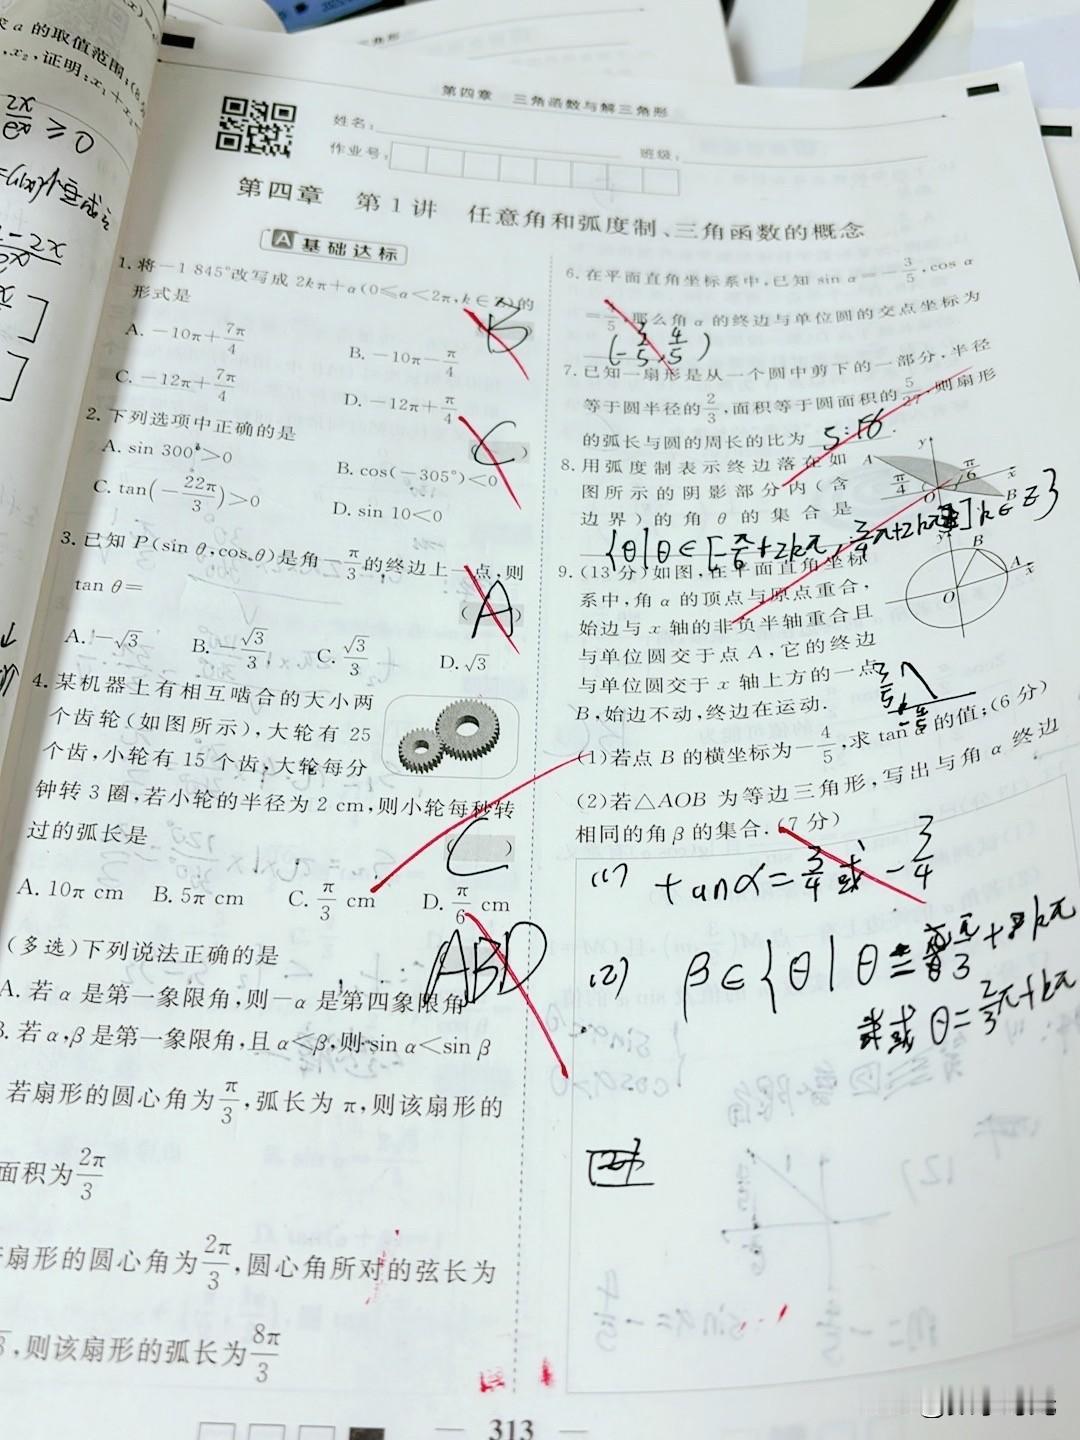 a 的取值范围;
x₂,证明:x₁+x₂
≥0
第四章 三角函数与解三角形
姓名:
作业号:
班级:
第四章 第1讲 任意角和弧度制、三角函数的概念
A 基础达标
1. 将-1 845°改写成 2kπ+α(0≤α<2π,k∈Z)的
形式是
B
A. -10π+7π/4
B. -10π-π/4
C. -12π+7π/4
D. -12π+π/4
2. 下列选项中正确的是
C
A. sin 300°>0
B. cos(-305°)<0
C. tan(-22π/3)>0
D. sin 10<0
3. 已知 P(sin θ,cos θ)是角-π/3的终边上一点,则
tan θ=
A
A. -√3
B. -√3/3
C. √3/3
D. √3
4. 某机器上有相互啮合的大小两
个齿轮(如图所示),大轮有 25
个齿,小轮有 15 个齿,大轮每分
钟转 3 圈,若小轮的半径为 2 cm,则小轮每秒转
过的弧长是
C
A. 10π cm
B. 5π cm
C. π/3 cm
D. π/6 cm
(多选)下列说法正确的是
ABD
A. 若 α 是第一象限角,则-α 是第四象限角
B. 若 α,β 是第一象限角,且 α<β,则 sin α<sin β
若扇形的圆心角为π/3,弧长为 π,则该扇形的
面积为2π/3
扇形的圆心角为2π/3,圆心角所对的弦长为
,则该扇形的弧长为8π/3
6. 在平面直角坐标系中,已知 sin α=-3/5,cos α
=4/5,那么角 α 的终边与单位圆的交点坐标为
(-3/5, 4/5)
7. 已知一扇形是从一个圆中剪下的一部分,半径
等于圆半径的2/3,面积等于圆面积的5/27,则扇形
的弧长与圆的周长的比为 5:18.
8. 用弧度制表示终边落在如
图所示的阴影部分内(含
边界)的角 θ 的集合是
{θ|θ∈[-π/6+2kπ, 3/4π+2kπ] k∈Z}
A
y
π/4
π/6
x
O
B
9. (13 分)如图,在平面直角坐标
系中,角 α 的顶点与原点重合,
始边与 x 轴的非负半轴重合且
与单位圆交于点 A,它的终边
与单位圆交于 x 轴上方的一点
B,始边不动,终边在运动.
y
B
A
x
O
3/5
-4/5
(1)若点 B 的横坐标为-4/5,求 tan α 的值;(6 分)
(2)若△AOB 为等边三角形,写出与角 α 终边
相同的角 β 的集合.(7 分)
(1) tanα=3/4或-3/4
(2) β∈{θ|θ=π/3+kπ
或 θ=2/3π+kπ
313